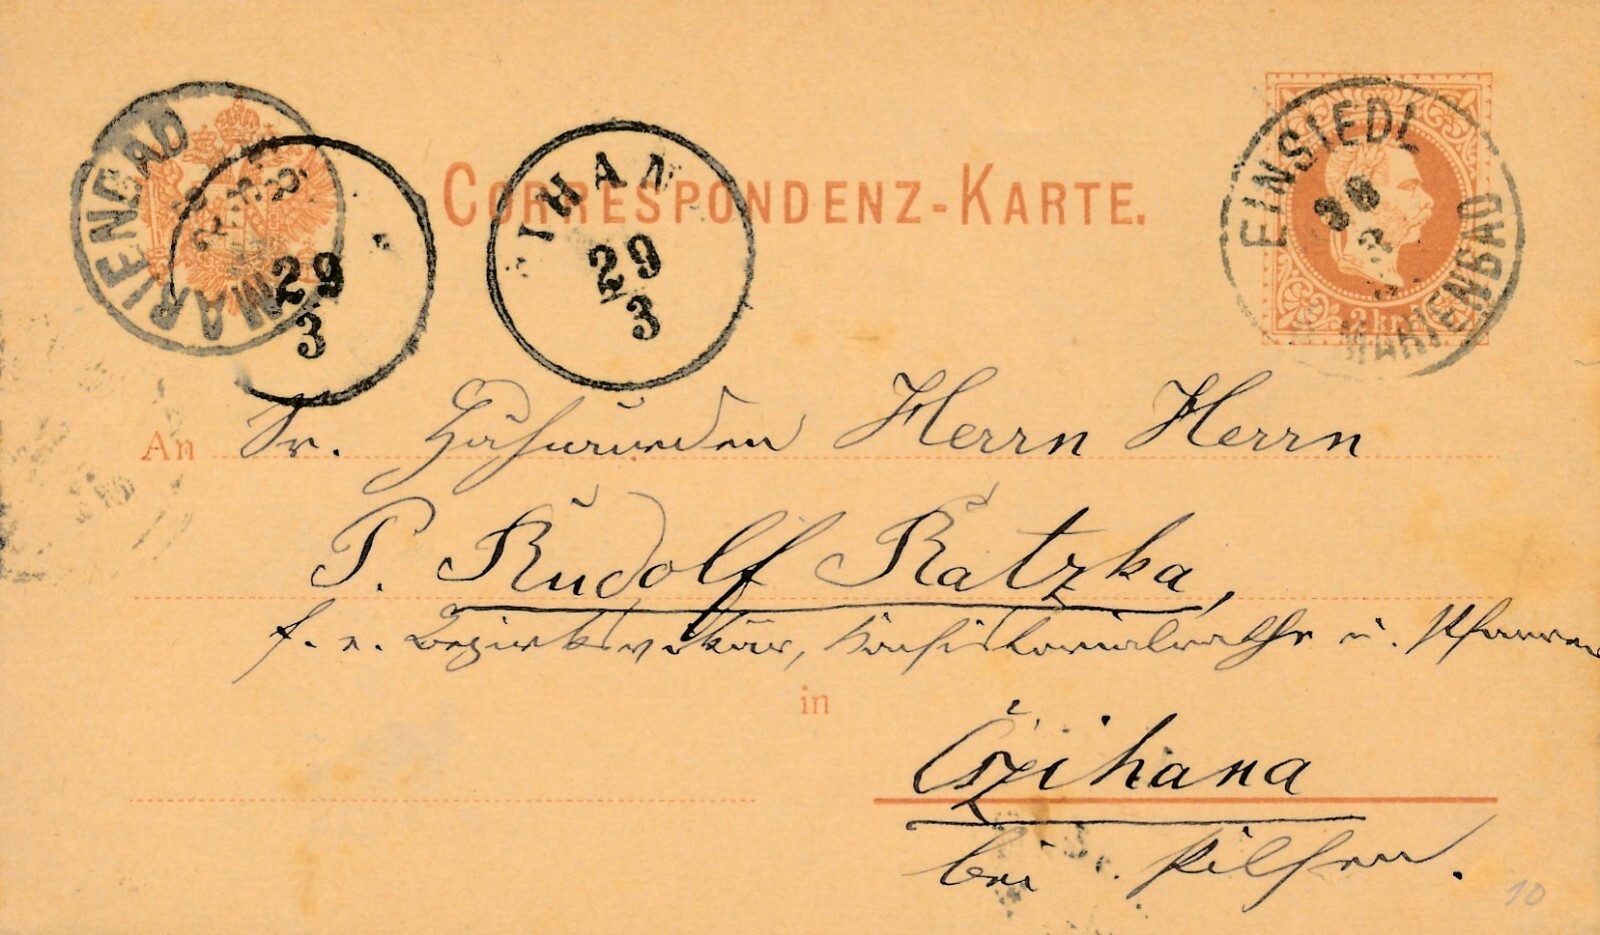 CORRESPONDENZ-KARTE.
MARIENBAD
29
3
IHAN
29
3
EINSIEDL
MARIENBAD
2 kr.
An Sr. Hochwürden Herrn Herrn
P. Rudolf Ratzka,
f. e. Bezirksvikär, Konsistorialrathe u. Pfarrer
in
Čzihana
bei Pilsen.
10